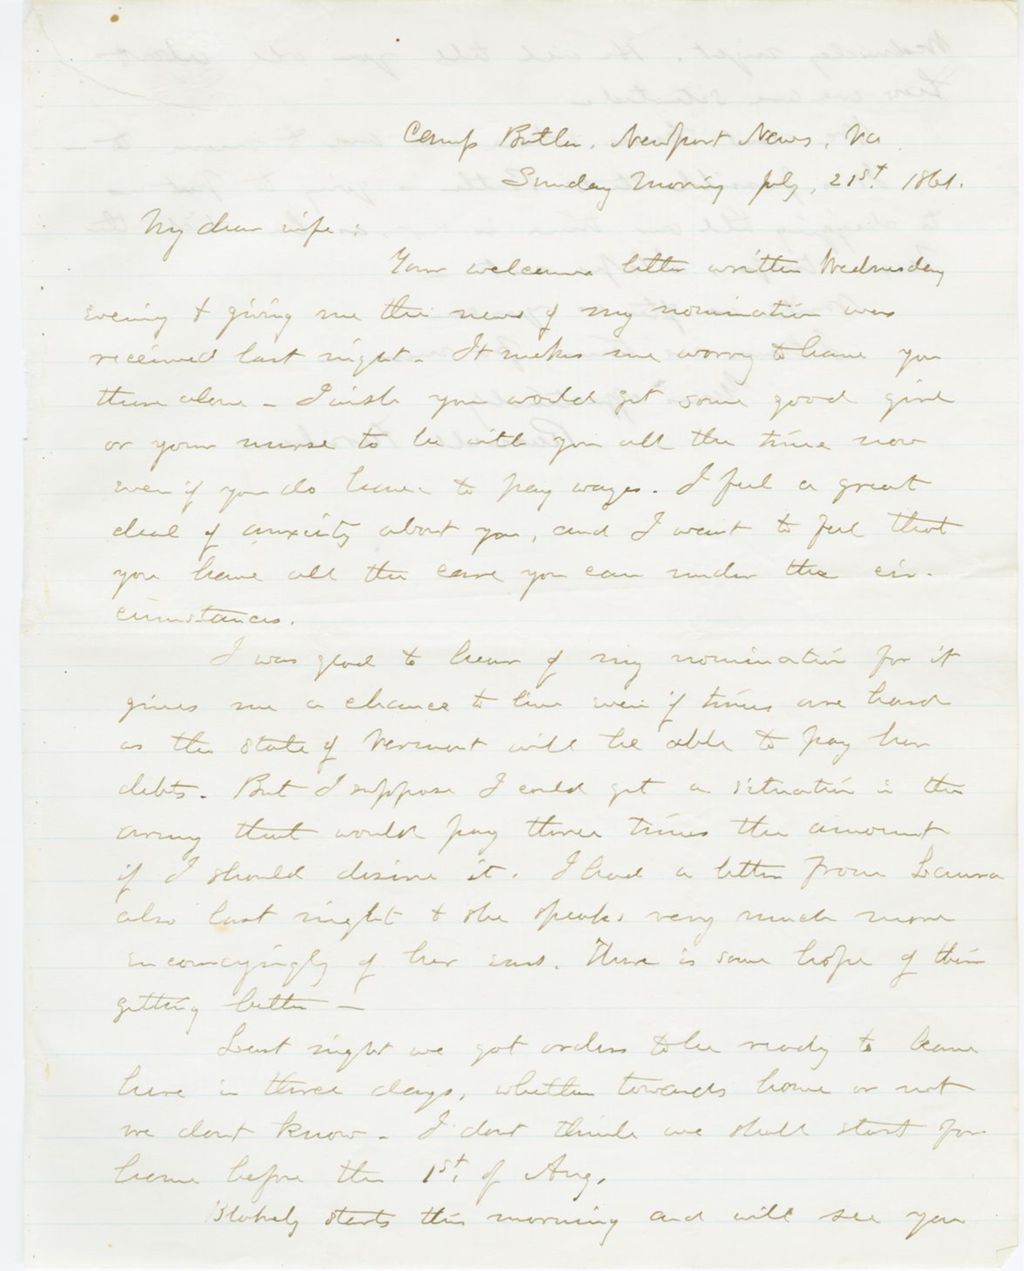 Camp Butler, Newport News, Va.
Sunday Morning July, 21st. 1861.
My dear wife:
Your welcome letter written Wednesday
evening & giving me the news of my nomination was
received last night. It makes me worry to leave you
there alone - I wish you would get some good girl
or your nurse to be with you all the time now
even if you do have to pay wages. I feel a great
deal of anxiety about you, and I want to feel that
you have all the care you can under the cir-
cumstances.
I was glad to hear of my nomination for it
gives me a chance to live even if times are hard
as the State of Vermont will be able to pay her
debts. But I suppose I could get a situation in the
army that would pay three times the amount
if I should desire it. I had a letter from Laura
also last night & she speaks very much more
encouragingly of her eyes. There is some hope of their
getting better -
Last night we got orders to be ready to leave
here in three days, whether towards home or not
we dont know - I dont think we shall start for
home before the 1st. of Aug.
Blakely starts this morning and will see you